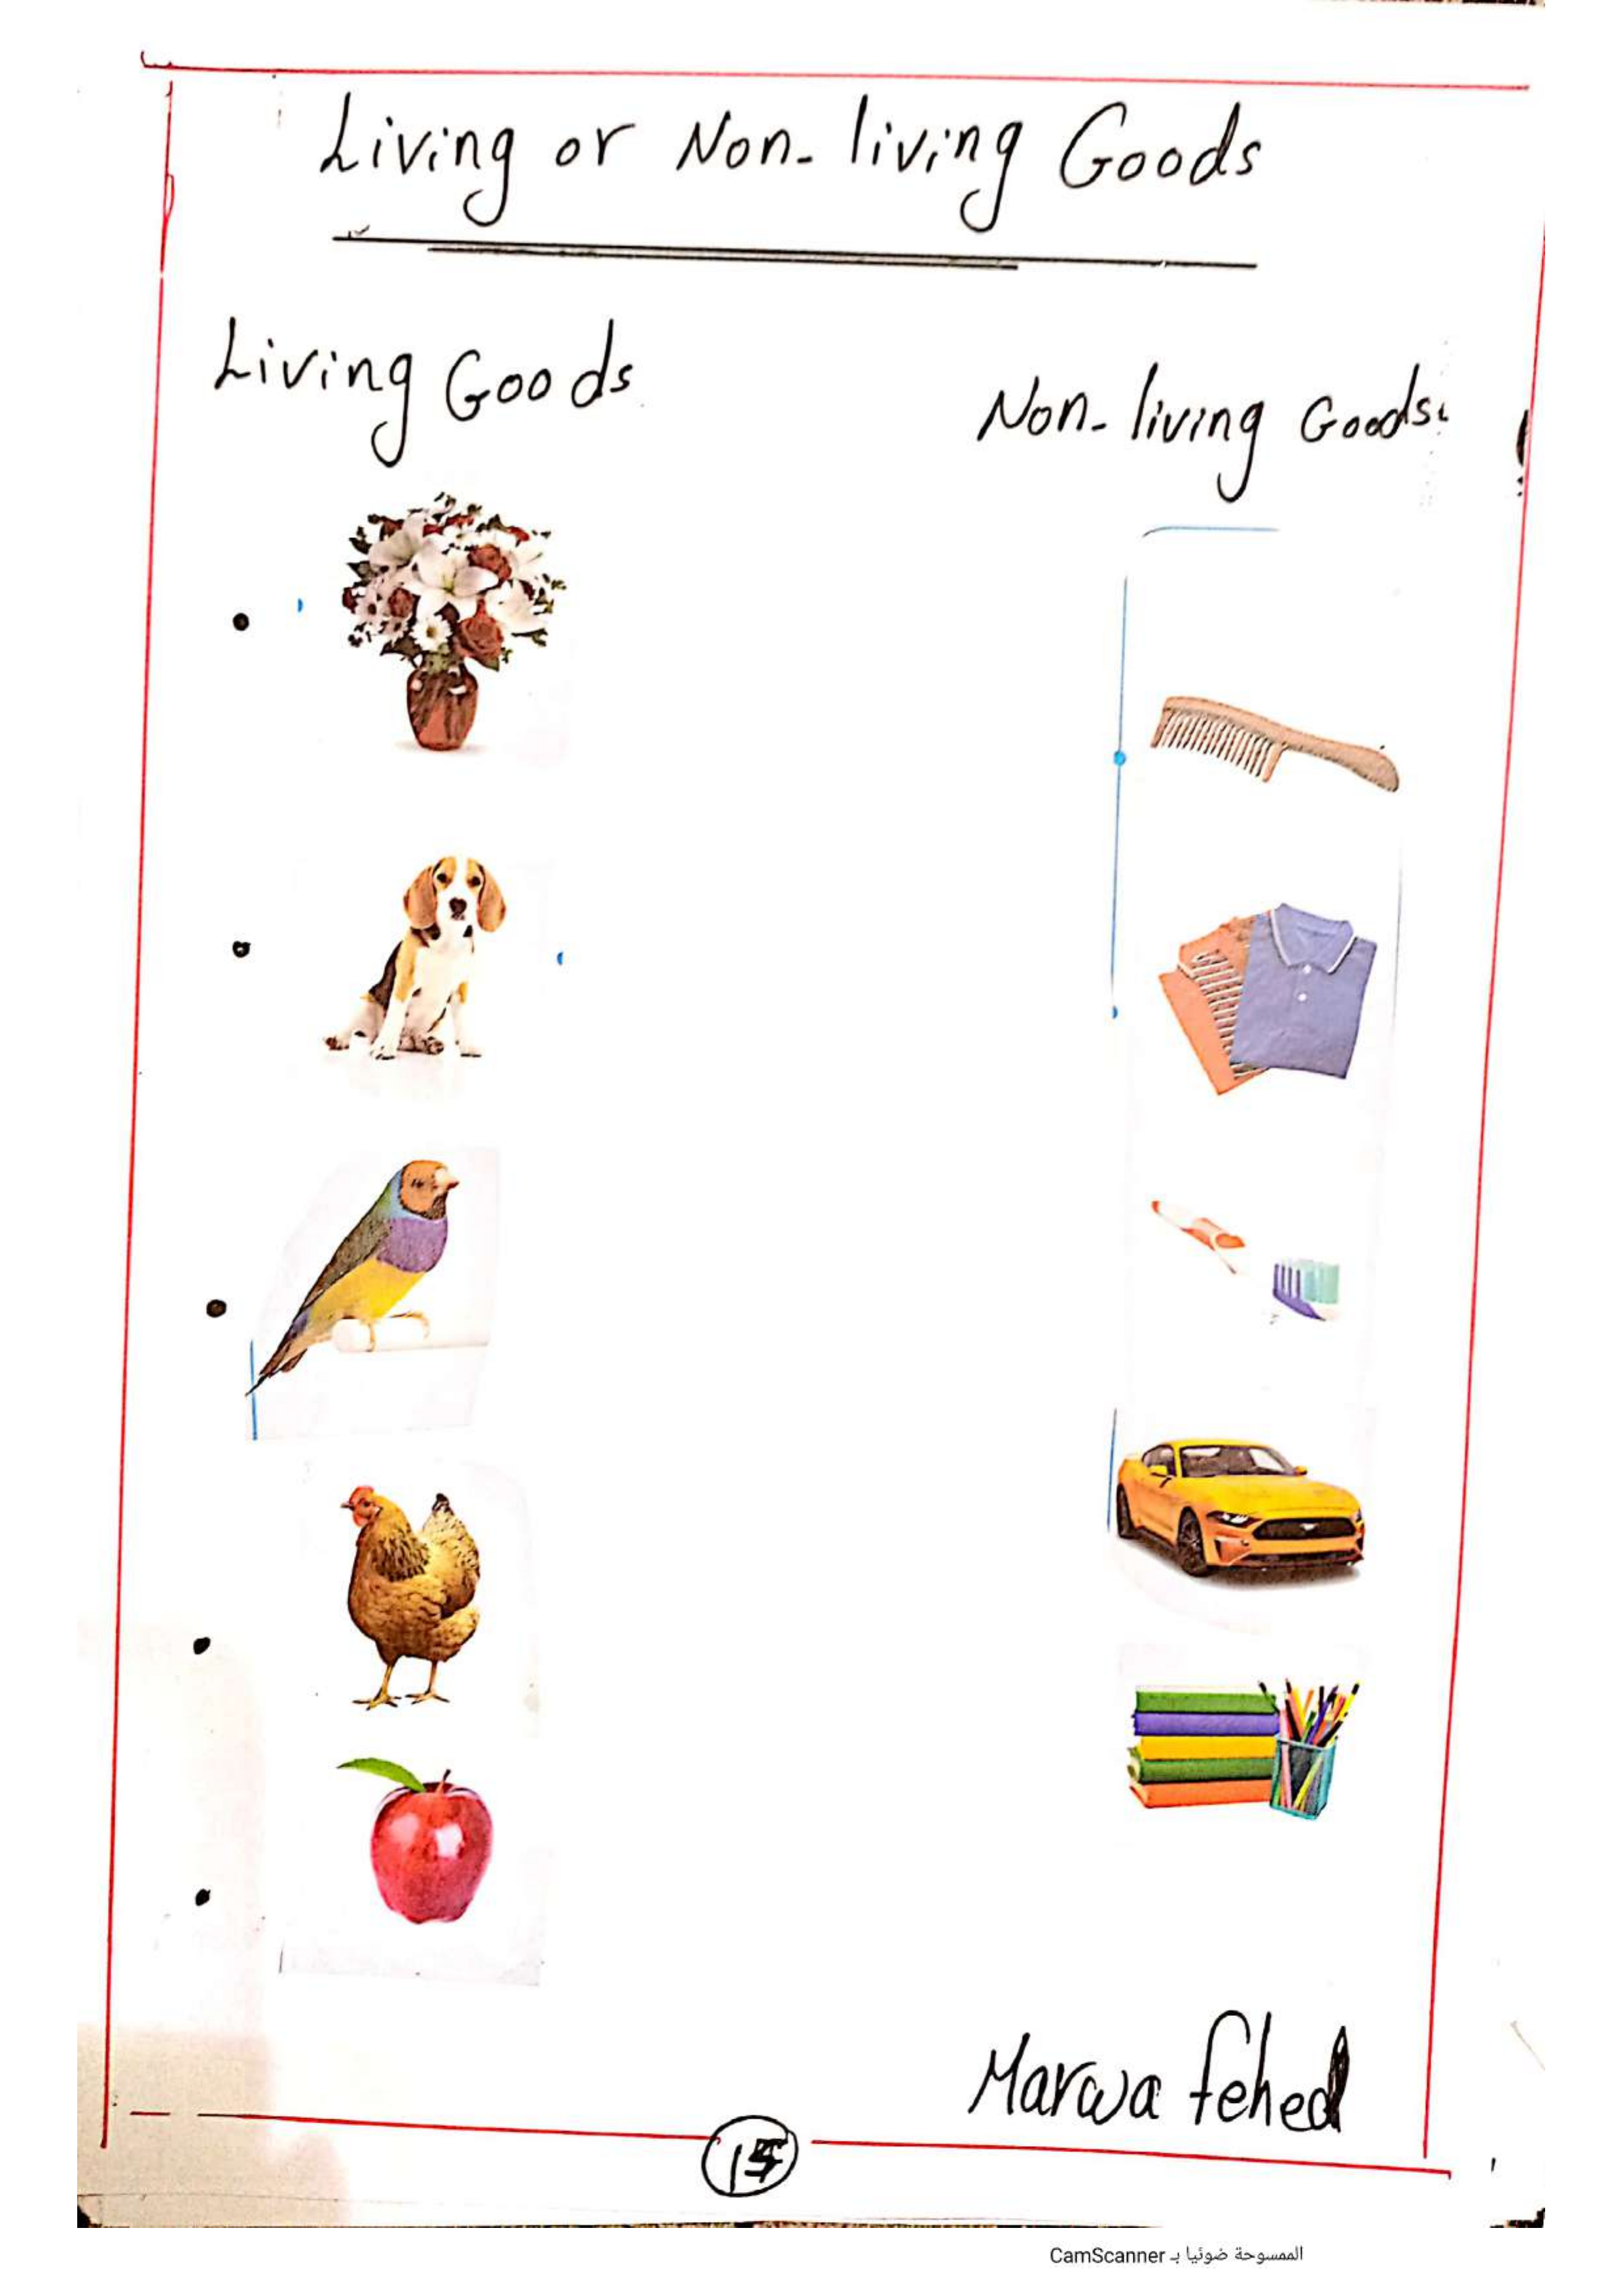 Living or Non-living Goods
Living Goods
Non-living Goods
Marwa fehed
الممسوحة ضوئيا بـ CamScanner